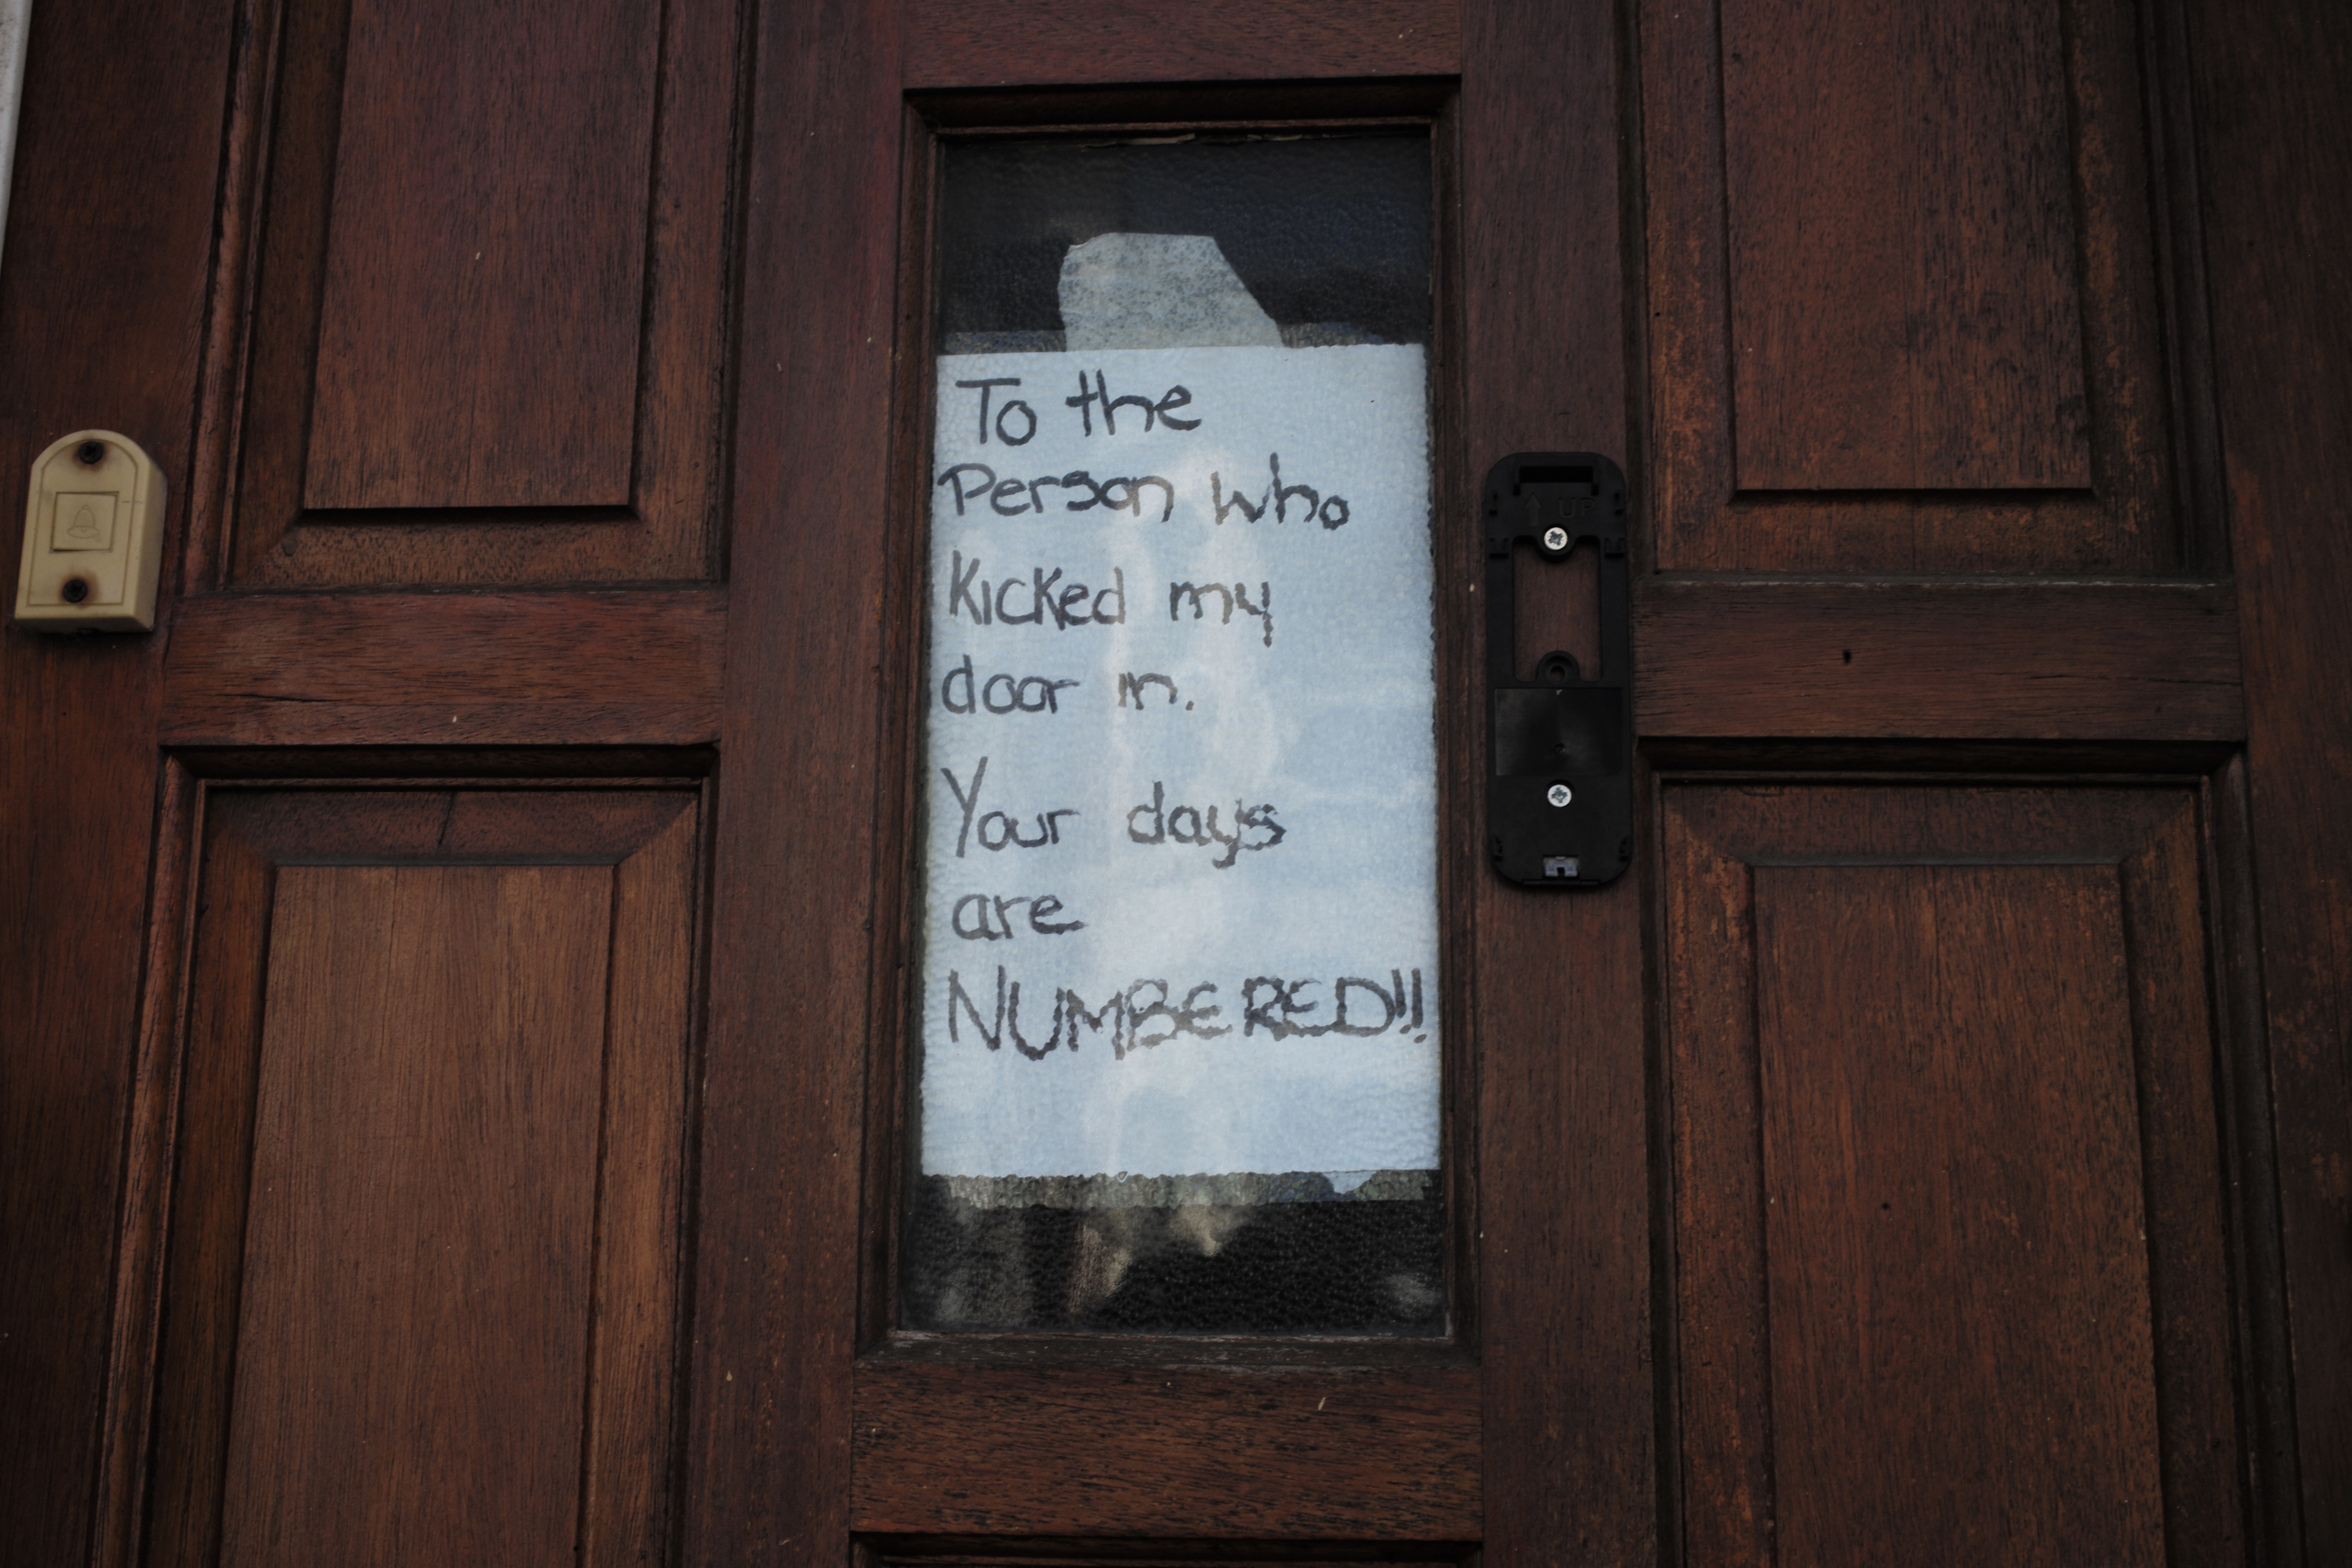 To the
Person who
Kicked my
door in.
Your days
are
NUMBERED!!
UP